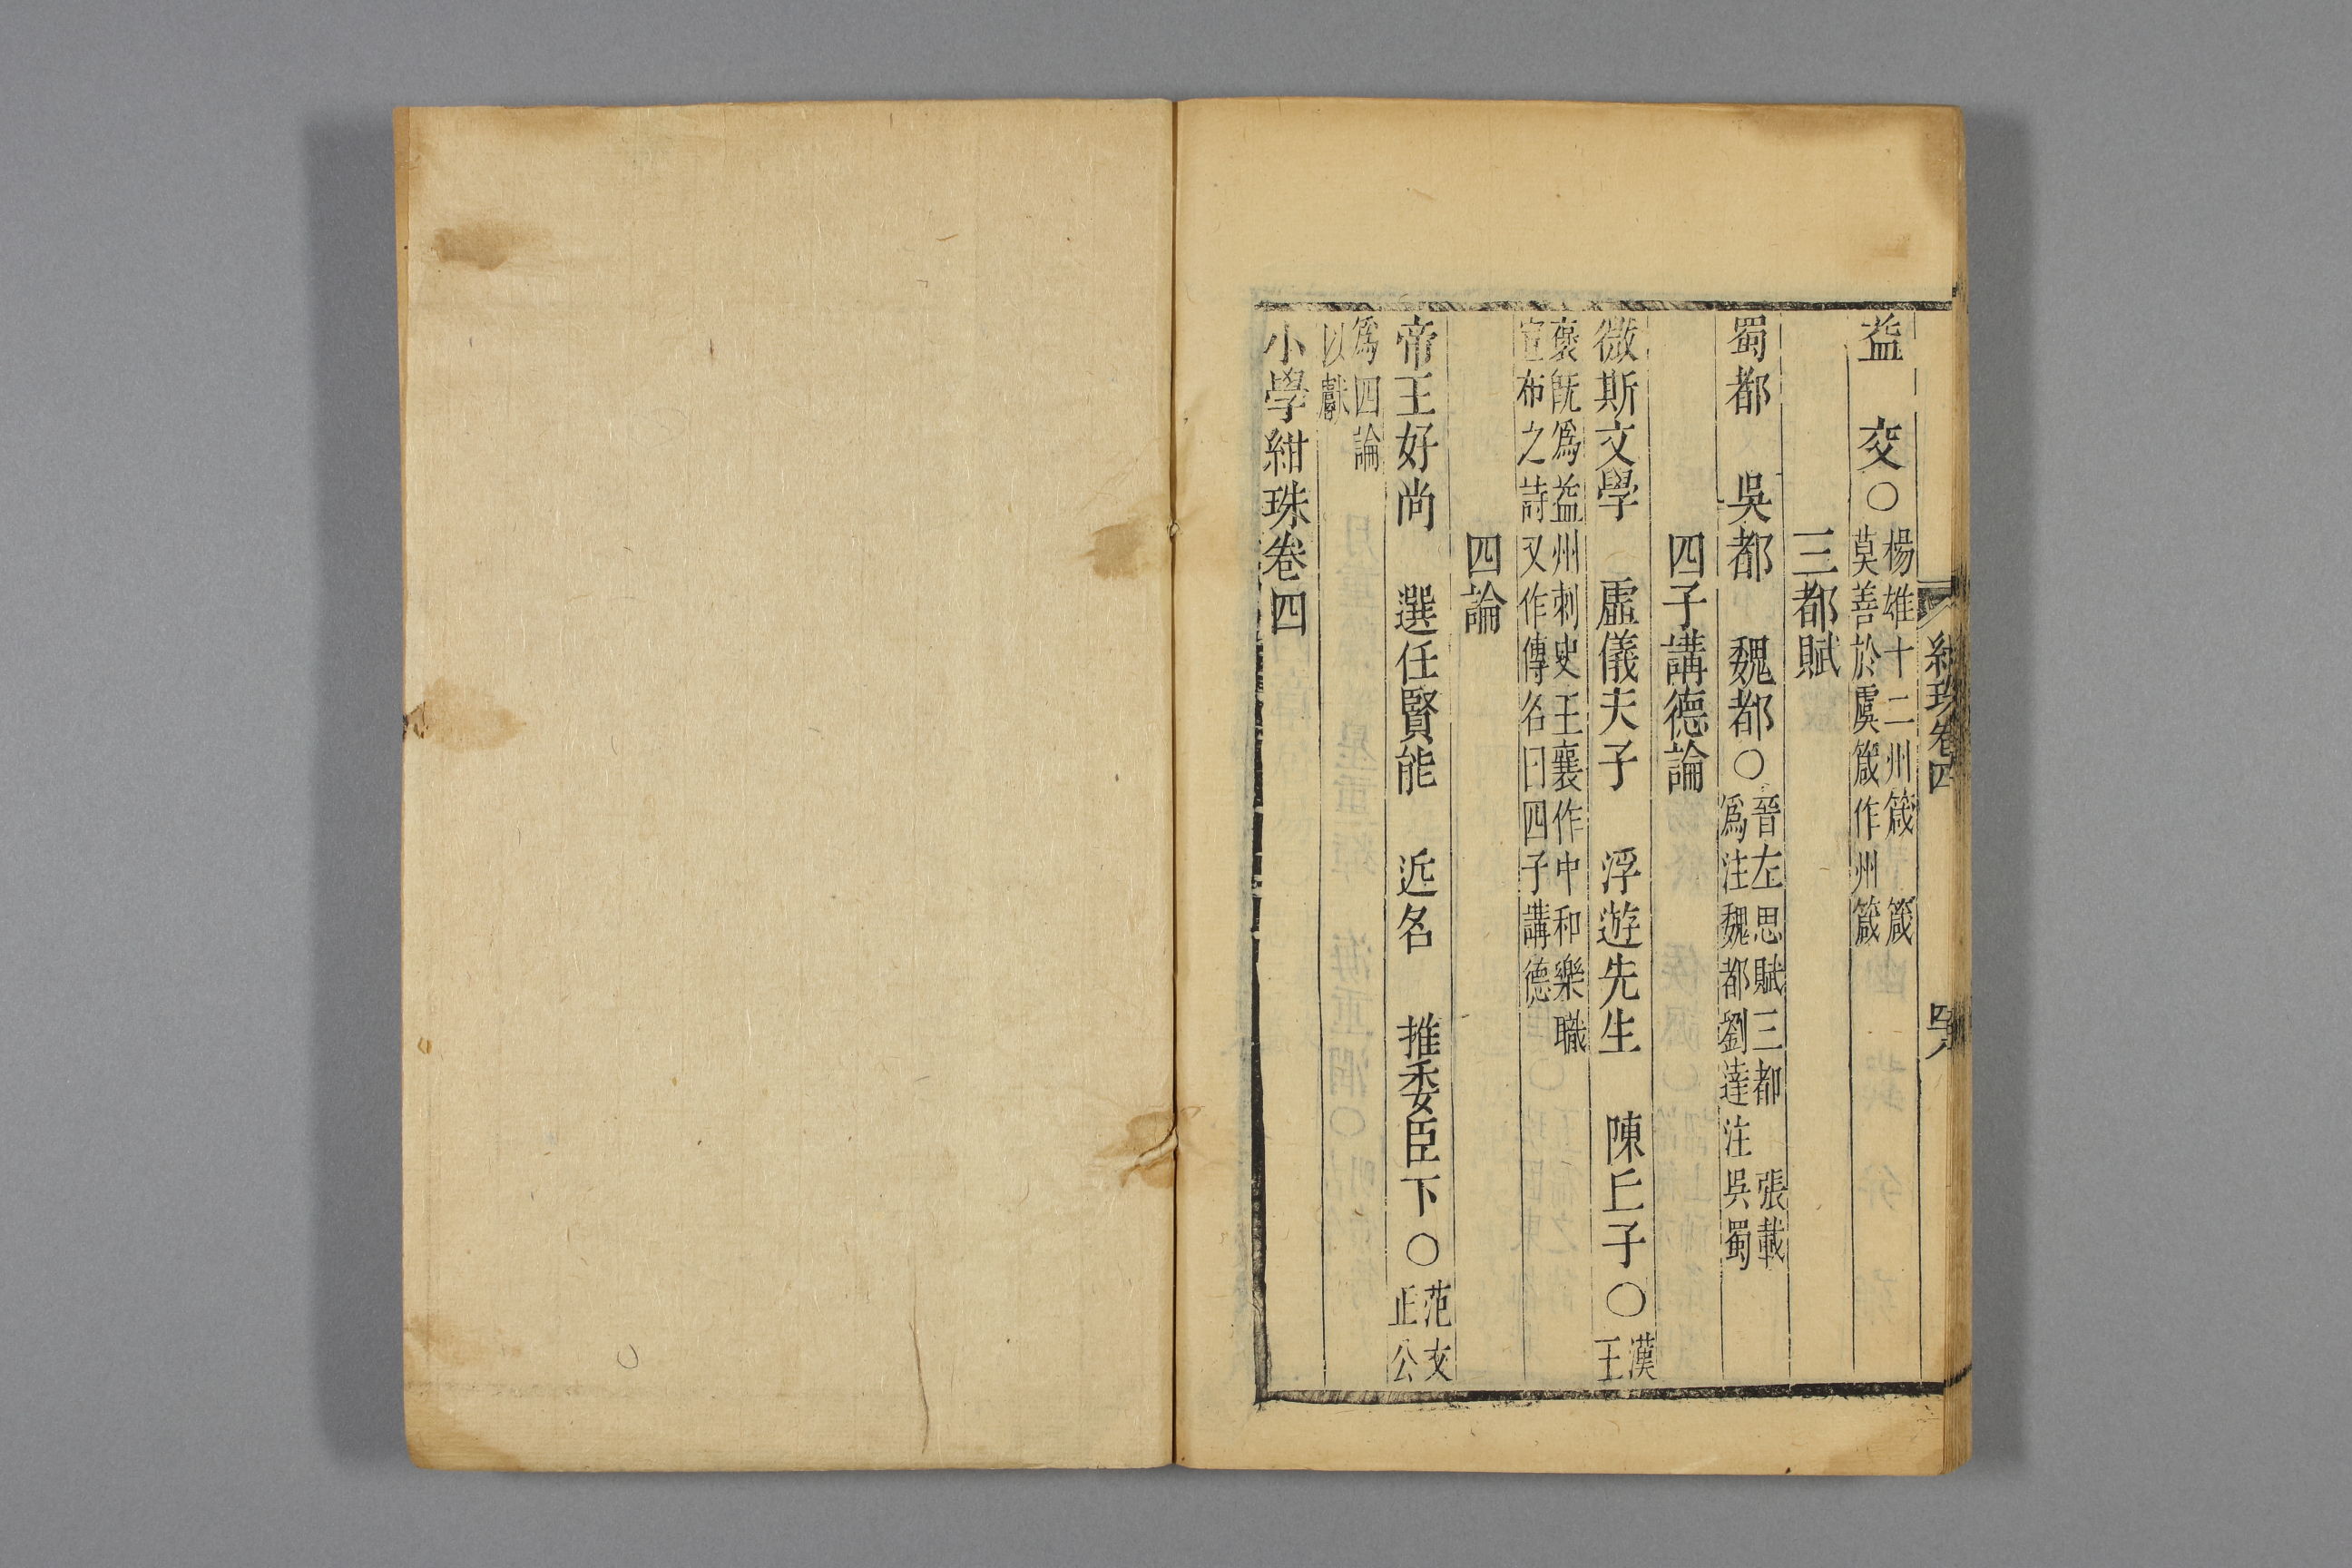 紺珠卷四
益　交○楊雄十二州箴　箴
莫善於虞箴作州箴
三都賦
蜀都　吳都　魏都○晉左思賦三都　張載
爲注魏都劉逵注吳蜀
四子講德論
微斯文學　虛儀夫子　浮遊先生　陳丘子○漢
王
褒旣爲益州刺史王襄作中和樂職
宣布之詩又作傳名曰四子講德
四論
帝王好尚　選任賢能　近名　推委臣下○范文
正公
爲四論
以獻
小學紺珠卷四